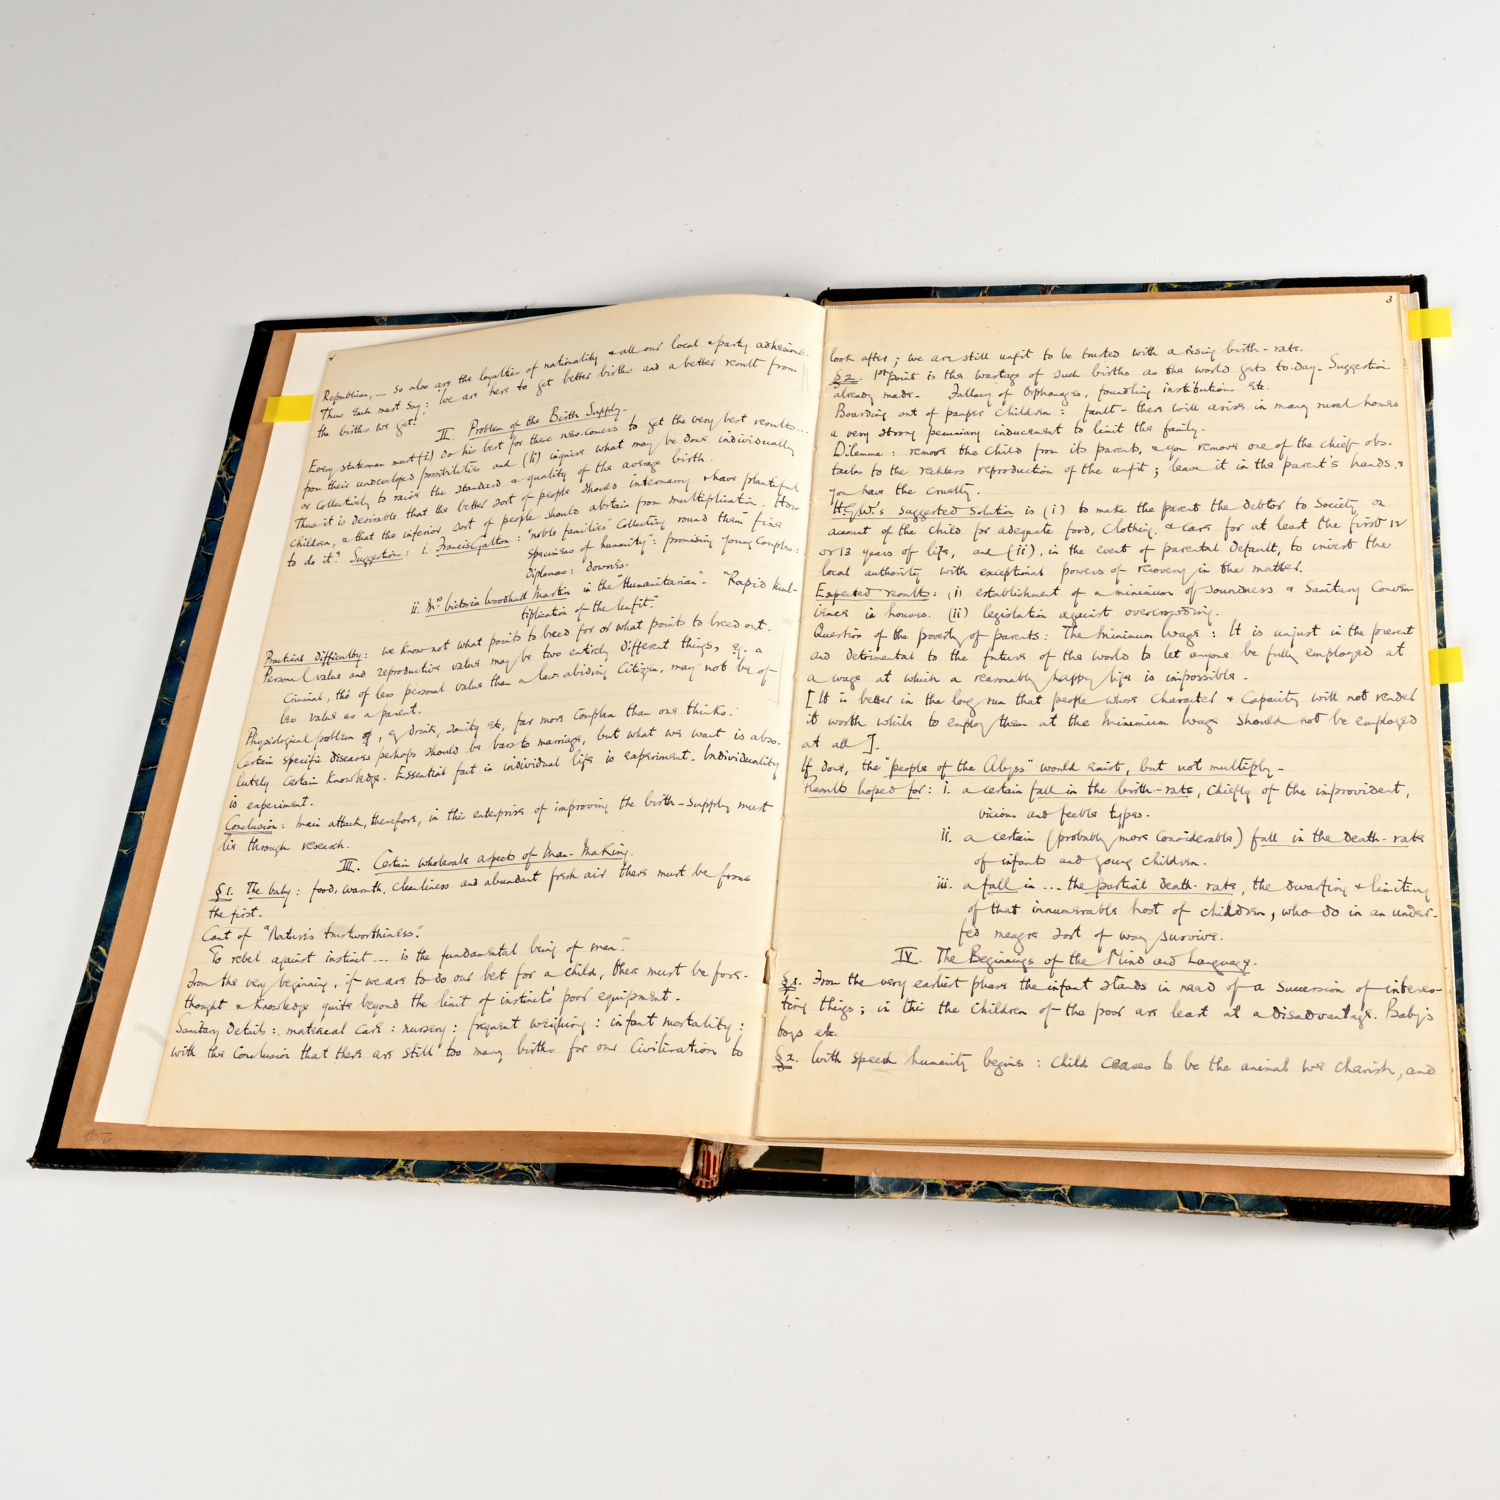 Republican, ... so also are the loyalties of nationality & all our local & party adhesions.
Thus each must say: we are here to get better births and a better result from
the births we get!
II. Problem of the Birth Supply.
Every statesman must (i) do his best for these new-comers to get the very best results...
from their undeveloped possibilities and (ii) inquire what may be done individually
or collectively to raise the standard & quality of the average birth.
Thus it is desirable that the better sort of people should intermarry & have plentiful
children, & that the inferior sort of people should abstain from multiplication. How
to do it? Suggestion: i. Francis Galton: "noble families" collecting round them "fine
specimens of humanity": promising young couples:
diplomas: dowries.
ii. Mrs Victoria Woodhull Martin in the "Humanitarian". "Rapid mul-
tiplication of the unfit."
Practical difficulty: we know not what points to breed for or what points to breed out.
Personal value and reproductive value may be two entirely different things, eg. a
Criminal, tho' of less personal value than a law-abiding Citizen, may not be of
less value as a parent.
Physiological problem of, eg drink, sanity etc, far more complex than one thinks.
Certain specific diseases perhaps should be bars to marriage, but what we want is abso-
lutely certain knowledge. Essential fact in individual life is experiment. Individuality
is experiment.
Conclusion: main attack, therefore, in this enterprise of improving the birth-supply must
lie through research.
III. Certain wholesale aspects of Man-Making.
§1. The baby: food, warmth, cleanliness and abundant fresh air there must be from
the first.
Cant of "Nature's trustworthiness."
"To rebel against instinct... is the fundamental being of man."
From the very beginning, if we are to do our best for a child, there must be fore-
thought & knowledge quite beyond the limit of instinct's poor equipment.
Sanitary details: material care: nursery: frequent weighing: infant mortality:
with the conclusion that there are still too many births for our Civilization to
3
look after; we are still unfit to be trusted with a rising birth-rate.
§2. 1st point is the wastage of such births as the world gets to-day. Suggestion
already made. Fallacy of Orphanages, foundling institutions etc.
Boarding out of pauper children: fault - there will arise in many rural homes
a very strong pecuniary inducement to limit the family.
Dilemma: remove the child from its parents, & you remove one of the chief obs-
tacles to the reckless reproduction of the unfit; leave it in the parent's hands, &
you have the cruelty.
H.G.W.'s Suggested Solution is (i) to make the parent the debtor to Society on
account of the child for adequate food, clothing, & care for at least the first 12
or 13 years of life, and (ii), in the event of parental default, to invest the
local authority with exceptional powers of recovery in the matter.
Expected results: (i) establishment of a minimum of soundness & Sanitary Conven-
ience in houses. (ii) legislation against overcrowding.
Question of the poverty of parents: The Minimum Wage: It is unjust in the present
and detrimental to the future of the world to let anyone be fully employed at
a wage at which a reasonably happy life is impossible.
[It is better in the long run that people whose character & capacity will not render
it worth while to employ them at the Minimum Wage should not be employed
at all].
If done, the "people of the Abyss" would exist, but not multiply.
Results hoped for: i. a certain fall in the birth-rate, chiefly of the improvident,
vicious and feeble types.
ii. a certain (probably more considerable) fall in the death-rate
of infants and young children.
iii. a fall in... the partial death-rate, the dwarfing & limiting
of that innumerable host of children, who do in an under-
fed meagre sort of way survive.
IV. The Beginnings of the Mind and Language.
§1. From the very earliest phase the infant stands in need of a succession of interes-
ting things; in this the children of the poor are least at a disadvantage. Baby's
toys etc.
§2. With speech humanity begins: child ceases to be the animal we cherish, and